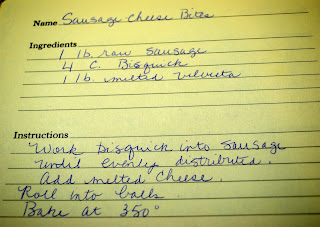 Name Sausage Cheese Bites
Ingredients
1 lb. raw sausage
4 C. Bisquick
1 lb. melted Velveeta
Instructions
Work Bisquick into sausage
until evenly distributed.
Add melted cheese.
Roll into balls.
Bake at 350°